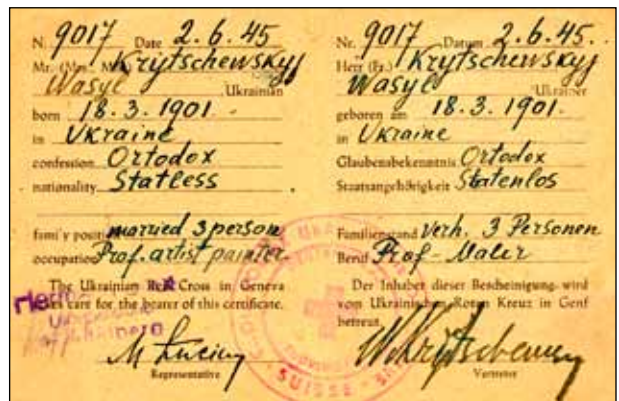 N. 9017 Date 2.6.45
Mr. (Mrs., M Krytschewskyj
Wasyl Ukrainian
born 18.3.1901.
in Ukraine
confession Ortodox
nationality Statless
fami'y position married 3 person
occupation Prof. artist painter
The Ukrainian Red Cross in Geneva
care for the bearer of this certificate.
Representative
Nr. 9017 Datum 2.6.45.
Herr (Fr.) Krytschewskyj
Wasyl Ukrainer
geboren am 18.3.1901.
in Ukraine
Glaubensbekenntnis Ortodox
Staatsangehörigkeit Statenlos
Familienstand verh. 3 Personen
Beruf Prof - Maler
Der Inhaber dieser Bescheinigung wird
vom Ukrainischen Roten Kreuz in Genf
betreut.
Vertreter
SUISSE